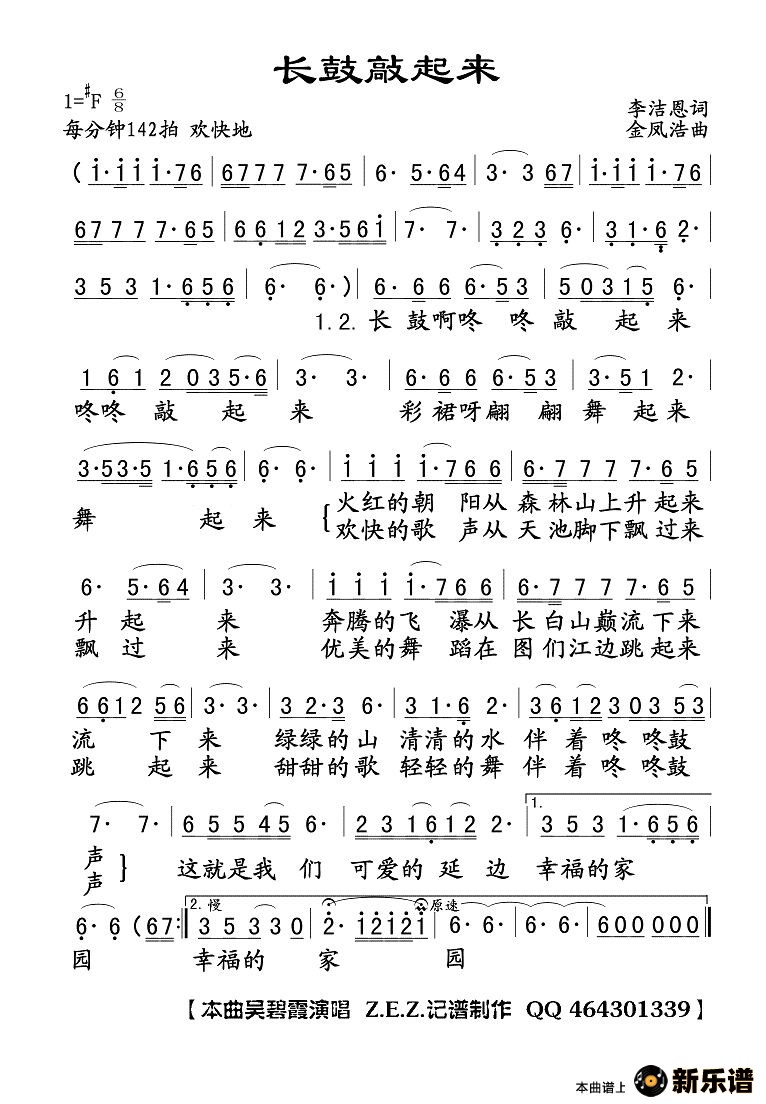 长鼓敲起来
1=♯F 6/8
李洁恩词
每分钟142拍 欢快地
金凤浩曲
(i·iii·76 | 67777 7·65 | 6· 5·64 | 3· 3 67 | i·iii·76 |
6777 7·65 | 6612 3·561 | 7· 7· | 323 6· | 3·16 2· |
353 1·656 | 6· 6·) | 6· 66 6·53 | 50315 6· |
1.2. 长 鼓啊咚 咚 敲 起 来
161 2035·6 | 3· 3· | 6· 66 6·53 | 3·51 2· |
咚咚 敲 起 来 彩 裙呀翩 翩 舞 起来
3·53·5 1·656 | 6· 6· | iii i·766 | 6·777 7·65 |
火红的朝 阳从 森林山上升起来
舞 起来
欢快的歌 声从 天池脚下飘过来
6· 5·64 | 3· 3· | iii i·766 | 6·777 7·65 |
升 起 来 奔腾的飞 瀑从 长白山巅流下来
飘 过 来 优美的舞 蹈在 图们江边跳起来
6612 56 | 3· 3· | 32·3 6· | 31·6 2· | 361230353 |
流 下来 绿绿的山 清清的水 伴着咚咚鼓
跳 起来 甜甜的歌 轻轻的舞 伴着咚咚鼓
1.
7· 7· | 65545 6· | 231612 2· | 353 1·656 |
声
声
这就是我 们 可爱的 延 边 幸福的家
2.慢 原速
6· 6 (67:‖ 35330 | 2· i2i2i | 6· 6· | 6· 6· | 600000‖
园 幸福的 家 园
【本曲吴碧霞演唱 Z.E.Z.记谱制作 QQ 464301339】
本曲谱上 新乐谱